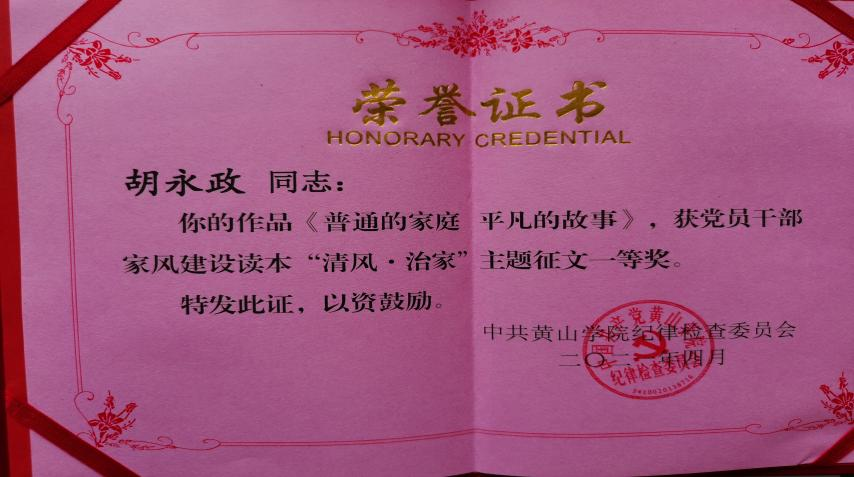 荣誉证书
HONORARY CREDENTIAL
胡永政 同志：
你的作品《普通的家庭 平凡的故事》，获党员干部
家风建设读本“清风·治家”主题征文一等奖。
特发此证，以资鼓励。
中共黄山学院纪律检查委员会
二〇二一年四月
中国共产党黄山学院
纪律检查委员会